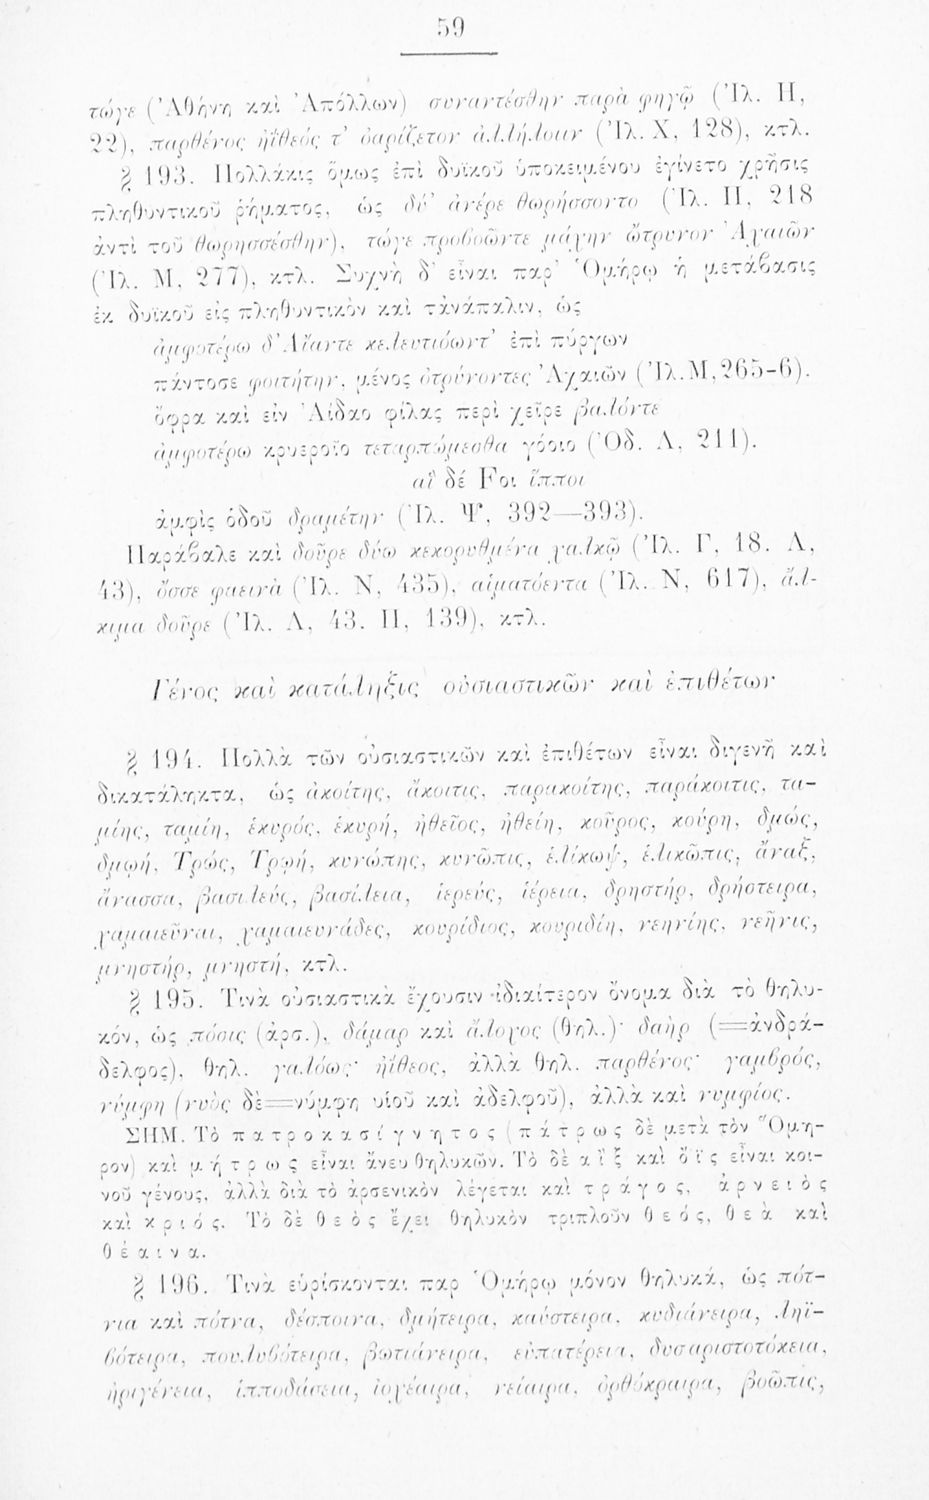 59
τώγε (Ἀθήνη καὶ Ἀπόλλων) συναντέσθην παρὰ φηγῷ (Ἰλ. Η,
22), παρθένος ἠΐθεός τ’ ὀαρίζετον ἀλλήλοιιν (Ἰλ. Χ, 128), κτλ.
§ 193. Πολλάκις ὅμως ἐπὶ δυϊκοῦ ὑποκειμένου ἐγίνετο χρῆσις
πληθυντικοῦ ῥήματος, ὡς δύ’ ἀνέρε θωρήσσοντο (Ἰλ. Π, 218
ἀντὶ τοῦ θωρησσέσθην), τώγε προβοῶντε μάχην ὤτρυνον Ἀχαιῶν
(Ἰλ. Μ, 277), κτλ. Συχνὴ δ’ εἶναι παρ’ Ὁμήρῳ ἡ μετάβασις
ἐκ δυϊκοῦ εἰς πληθυντικὸν καὶ τἀνάπαλιν, ὡς
ἀμφοτέρω δ’ Αἴαντε κελευτιόωντ’ ἐπὶ πύργων
πάντοσε φοιτήτην, μένος ὀτρύνοντες Ἀχαιῶν (Ἰλ. Μ, 265-6).
ὄφρα καὶ εἰν Ἀίδαο φίλας περὶ χεῖρε βαλόντε
ἀμφοτέρω κρυεροῖο τεταρπώμεσθα γόοιο (Ὀδ. Λ, 211).
αἳ δέ Ϝοι ἵπποι
ἀμφὶς ὁδοῦ δραμέτην (Ἰλ. Ψ, 392—393).
Παράβαλε καὶ δοῦρε δύω κεκορυθμένα χαλκῷ (Ἰλ. Γ, 18. Λ,
43), ὄσσε φαεινὰ (Ἰλ. Ν, 435), αἱματόεντα (Ἰλ. Ν, 617), ἄλ-
κιμα δοῦρε (Ἰλ. Λ, 43. Π, 139), κτλ.
Γένος καὶ κατάληξις οὐσιαστικῶν καὶ ἐπιθέτων
§ 194. Πολλὰ τῶν οὐσιαστικῶν καὶ ἐπιθέτων εἶναι διγενῆ καὶ
δικατάληκτα, ὡς ἀκοίτης, ἄκοιτις, παρακοίτης, παράκοιτις, τα-
μίης, ταμίη, ἑκυρός, ἑκυρή, ἠθεῖος, ἠθείη, κοῦρος, κούρη, δμώς,
δμῳή, Τρώς, Τρῳή, κυνώπης, κυνῶπις, ἑλίκωψ, ἑλικῶπις, ἄναξ,
ἄνασσα, βασιλεύς, βασίλεια, ἱερεύς, ἱέρεια, δρηστήρ, δρήστειρα,
χαμαιεῦναι, χαμαιευνάδες, κουρίδιος, κουριδίη, νεηνίης, νεῆνις,
μνηστήρ, μνηστή, κτλ.
§ 195. Τινὰ οὐσιαστικὰ ἔχουσιν ἰδιαίτερον ὄνομα διὰ τὸ θηλυ-
κόν, ὡς πόσις (ἀρσ.), δάμαρ καὶ ἄλοχος (θηλ.)· δαὴρ (=ἀνδρά-
δελφος), θηλ. γαλόως· ἠΐθεος, ἀλλὰ θηλ. παρθένος· γαμβρός,
νύμφη (νυὸς δὲ=νύμφη υἱοῦ καὶ ἀδελφοῦ), ἀλλὰ καὶ νυμφίος.
ΣΗΜ. Τὸ πατροκασίγνητος (πάτρως δὲ μετὰ τὸν Ὅμη-
ρον) καὶ μήτρως εἶναι ἄνευ θηλυκῶν. Τὸ δὲ αἲξ καὶ ὄϊς εἶναι κοι-
νοῦ γένους, ἀλλὰ διὰ τὸ ἀρσενικὸν λέγεται καὶ τράγος, ἀρνειὸς
καὶ κριός. Τὸ δὲ θεὸς ἔχει θηλυκὸν τριπλοῦν θεός, θεὰ καὶ
θέαινα.
§ 196. Τινὰ εὑρίσκονται παρ Ὁμήρῳ μόνον θηλυκά, ὡς πότ-
νια καὶ πότνα, δέσποινα, δμήτειρα, καύστειρα, κυδιάνειρα, ληϊ-
βότειρα, πουλυβότειρα, βωτιάνειρα, εὐπατέρεια, δυσαριστοτόκεια,
ἠριγένεια, ἱπποδάσεια, ἰοχέαιρα, νείαιρα, ὀρθόκραιρα, βοῶπις,